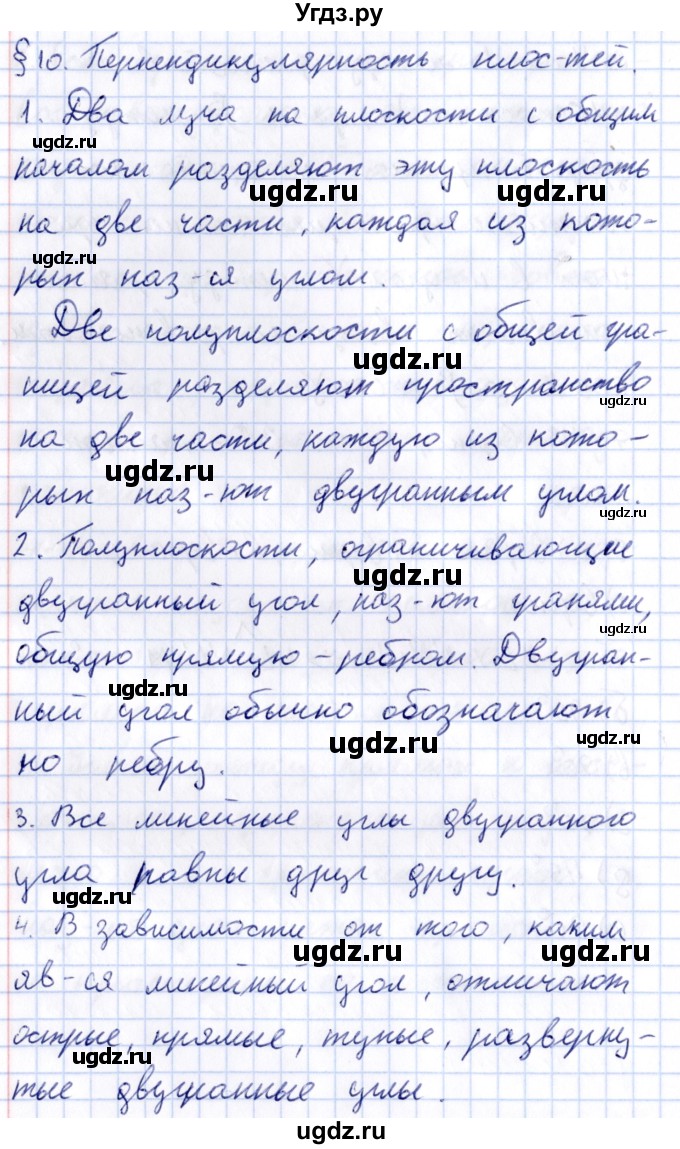 Угдз.ру
§10. Перпендикулярность плос-тей.
1. Два луча на плоскости с общим
ugdz.ru
началом разделяют эту плоскость
ugdz.ru ugdz.ru
на две части, каждая из кото-
ugdz.ru
рых наз-ся углом.
Две полуплоскости с общей гра-
ugdz.ru
ницей разделяют пространство
ugdz.ru
на две части, каждую из кото-
ugdz.ru
рых наз-ют двугранным углом.
ugdz.ru
2. Полуплоскости, ограничивающие
ugdz.ru
двугранный угол, наз-ют гранями,
ugdz.ru
общую прямую - ребром. Двугран-
ugdz.ru
ный угол обычно обозначают
ugdz.ru
по ребру.
3. Все линейные углы двугранного
угла равны друг другу.
ugdz.ru
4. В зависимости от того, каким
ugdz.ru ugdz.ru
яв-ся линейный угол, отличают
острые, прямые, тупые, разверну-
ugdz.ru ugdz.ru
тые двугранные углы.
ugdz.ru